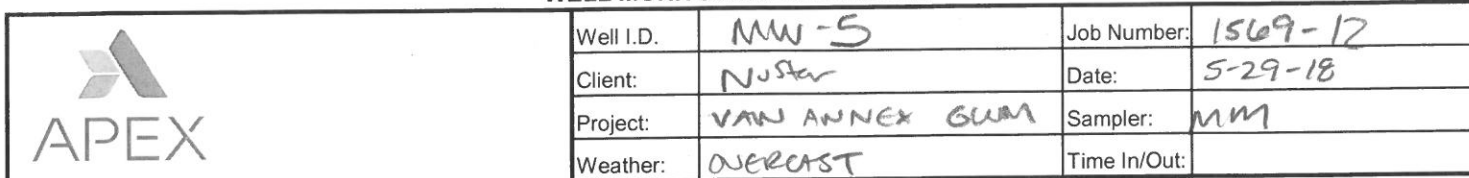 APEX
Well I.D. MW-5 Job Number: 1569-12
Client: NuStar Date: 5-29-18
Project: VAN ANNEX GWM Sampler: MM
Weather: OVERCAST Time In/Out: